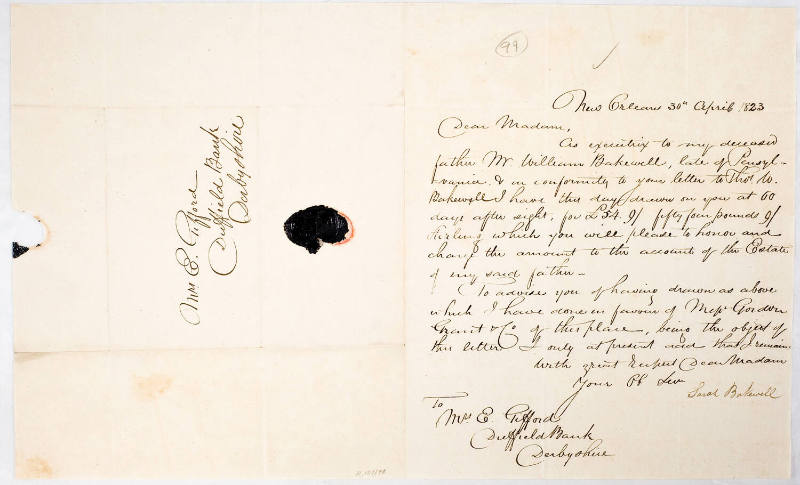 Mrs E. Gifford
Duffield Bank
Derbyshire
99
New Orleans 30th April 1823
Dear Madam,
As executrix to my deceased
father Mr William Bakewell, late of Pensyl-
-vania & in conformity to your letter to Thos W.
Bakewell I have this day drawn on you at 60
days after sight, for £54. 9/ fifty four pounds 9/
Sterling which you will please to honor and
charge the amount to the account of the Estate
of my said father –
To advise you of having drawn as above
which I have done in favour of Messrs Gordon
Grant & Co of this place, being the object of
this letter I only at present add that I remain
With great respect Dear Madam
Your Ob Serv
Sarah Bakewell
To
Mrs E. Gifford
Duffield Bank
Derbyshire